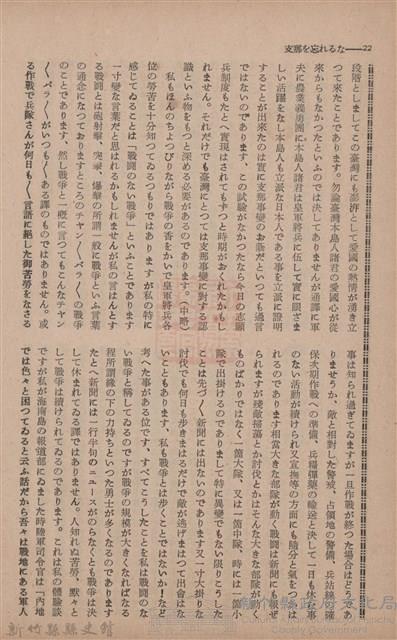 支那を忘れるな——22
段階としましてこの臺灣にも澎湃として愛國の熱情が湧き立
つて來たことであります。勿論臺灣本島人諸君の愛國心が從
來からもなかつたといふのでは決してありませんが通譯に軍
夫に農業義勇團に本島人諸君は皇軍將兵に伍して實に涙ぐま
しい活躍をなし本島人も立派な日本人である事を立派に證明
することが出來たのは實に支那事變のお蔭だといつても過言
ではないのであります、この試驗がなかつたなら今日の志願
兵制度もたとへ實現はされてもずつと時期がおくれたかもし
れません。それだけでも臺灣にとつては支那事變に對する認
識といふ物をもつと深める必要があるのであります。（中略）
私もほんのちよつぴりながら戰爭の香をかいで皇軍將兵各
位の勞苦を十分知つてゐるつもりではありますが私の特に
感じてゐることは「戰鬪のない戰爭」といふことであります
一寸變な言葉だと思はれるかもしれませんが私の言はんとす
る戰鬪とは砲射擊、突擊、爆擊の所謂一般に戰爭といふ言葉
の通念になつておりますところのチヤン〱バラ〱の戰爭
のことであります、然し戰爭と一概に言つてもこんなチヤン
〱バラ〱がいつも〱ある譯のものではありません。或
る作戰で兵隊さんが何日も〱言語に絕した御苦勞をなさる
事は知られ過ぎてゐますが一旦作戰が終つた場合はどうであ
りませうか、敵と相對した警戒、占領地の警備、兵站線確
保次期作戰への準備、兵糧彈藥の輸送と決して一日も休む事
のない活動が續けられ又宣撫等の方面にも隨分と氣をつかは
れるのであります相當大きな部隊が動く戰鬪は新聞にも報ぜ
られますが殘敵掃蕩とか討伐とかはそんな大きな部隊が動く
ものばかりではなく一箇大隊、又は一箇中隊、時には一箇小
隊で出掛けるのでありまして特に異變でもない限りこうした
ことは先づ〱新聞には出ないのであります又一寸大掛りな
討伐でも何日も步きまはるだけで敵が逃げまはつて出會はな
いこともあります、私も戰爭とは步くことではないか！など
考へた事がある位です、すべてこうしたことを私は戰鬪のな
い戰爭と稱してゐるのですが戰爭の規模が大きくなればなる
程所謂緣の下の力持ちといつた勇士が多くなるのであります
たとへ新聞には一行半句のニユースがのらなくとも戰爭は決
して休まれてゐる譯ではありません。人知れぬ苦勞、默々と
して戰爭は續けられてゐるのであります。これは私の體驗談
ですが私が海南島の報道部にゐました時陸軍司令官は「內地
では色々と困つてゐると云ふ話だから吾々は戰地にある軍人
新竹縣縣史館
新竹縣政府文化局
Obachy Government